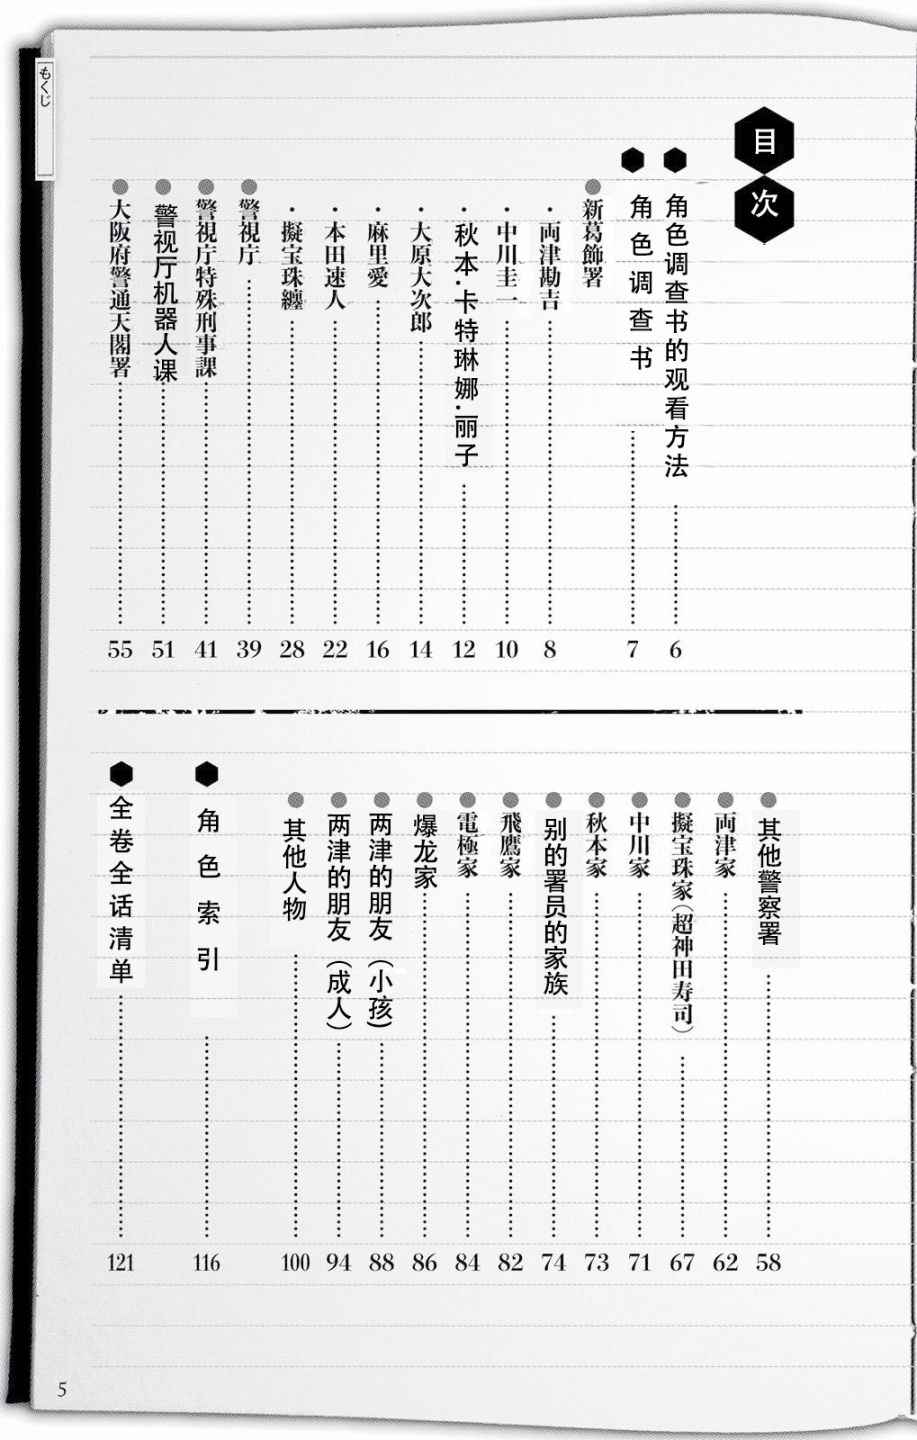 目次
角色调查书的观看方法 6
角色调查书 7
新葛飾署
・両津勘吉 8
・中川圭一 10
・秋本·卡特琳娜·丽子 12
・大原大次郎 14
・麻里愛 16
・本田速人 22
・擬宝珠纏 28
警視庁 39
警視庁特殊刑事課 41
警视厅机器人课 51
大阪府警通天閣署 55
其他警察署 58
両津家 62
擬宝珠家（超神田寿司） 67
中川家 71
秋本家 73
别的署员的家族 74
飛鷹家 82
電極家 84
爆龙家 86
两津的朋友（小孩） 88
两津的朋友（成人） 94
其他人物 100
角色索引 116
全卷全话清单 121
もくじ
5